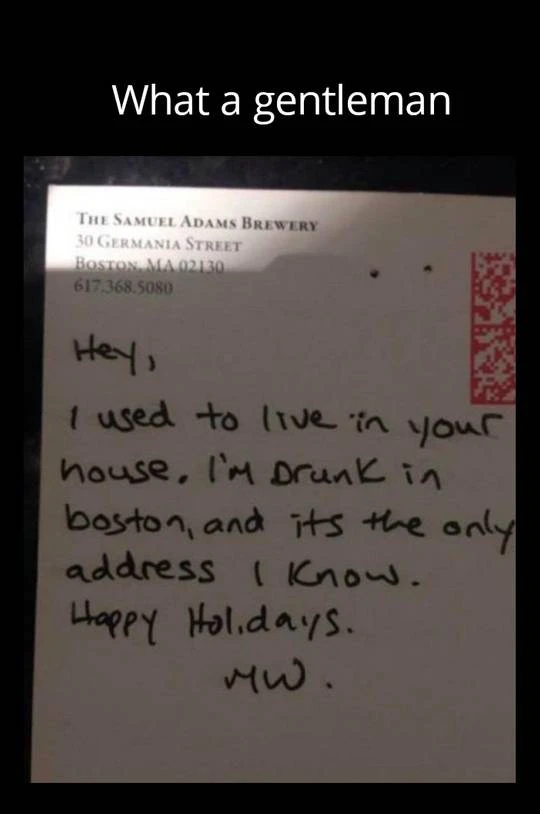 What a gentleman
THE SAMUEL ADAMS BREWERY
30 GERMANIA STREET
BOSTON, MA 02130
617.368.5080
Hey,
I used to live in your
house. I'm Drunk in
boston, and its the only
address I Know.
Happy Holidays.
MW.